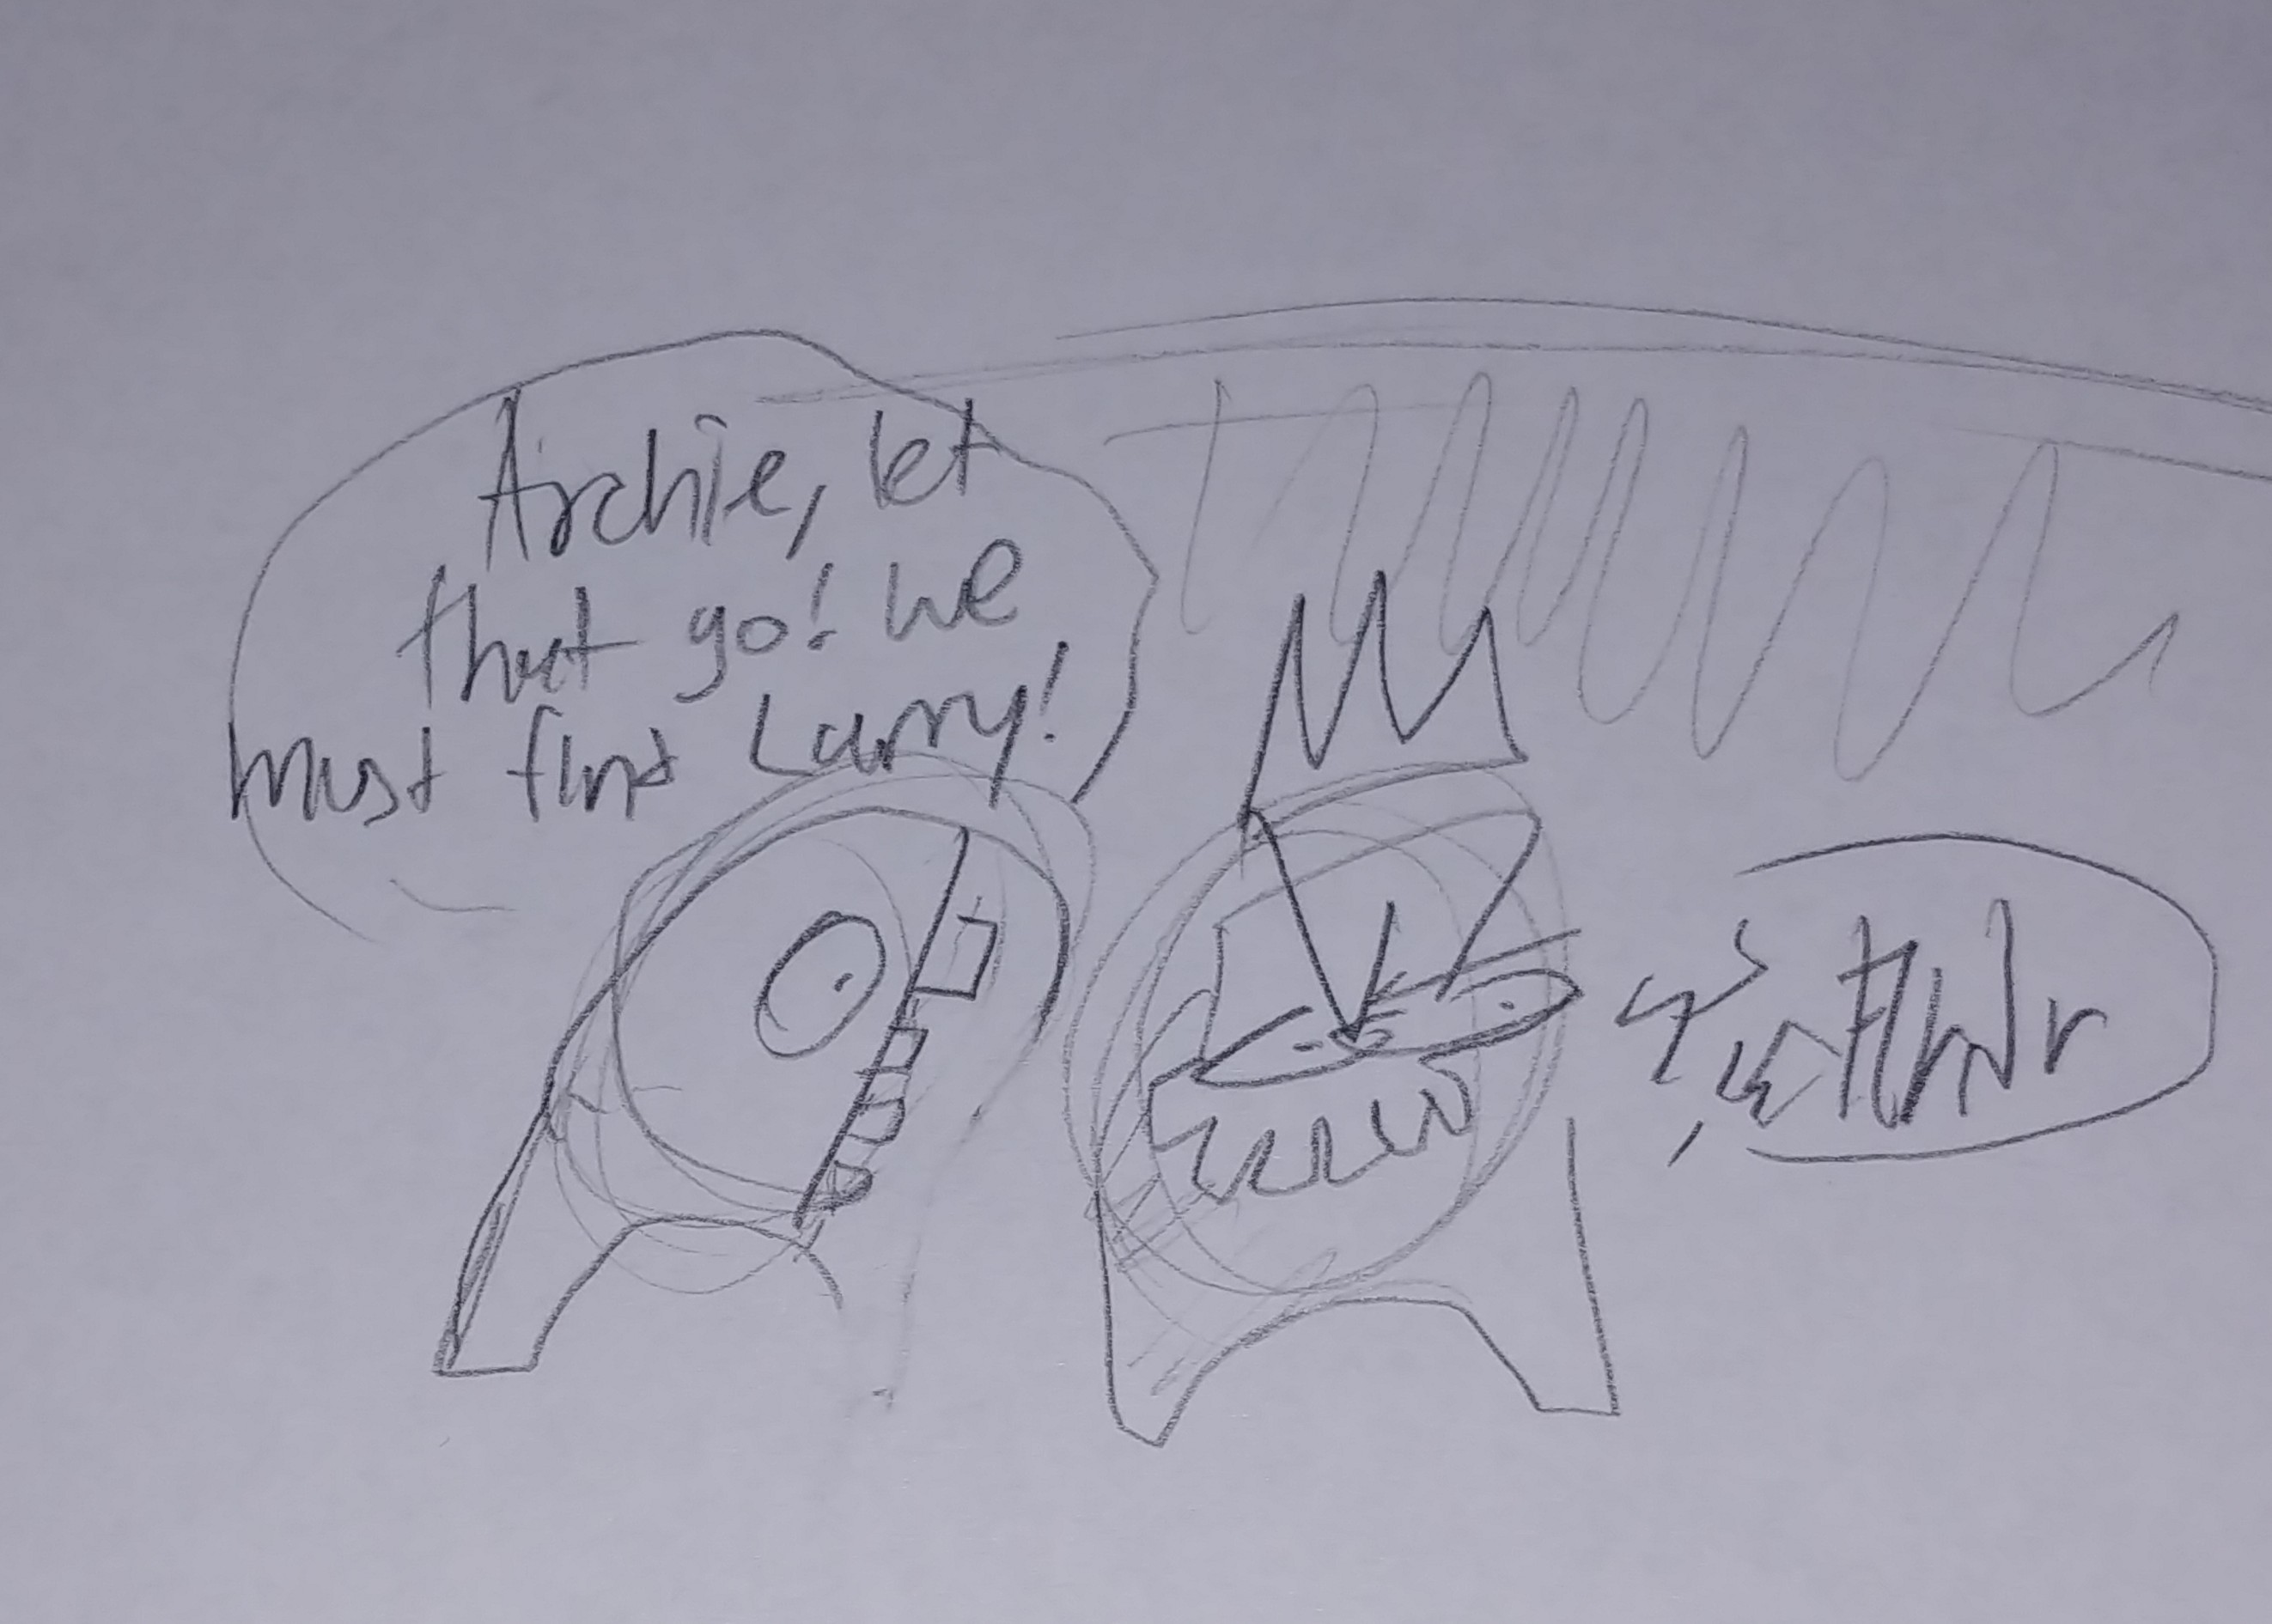 Archie, let
that go! we
must find Larry!